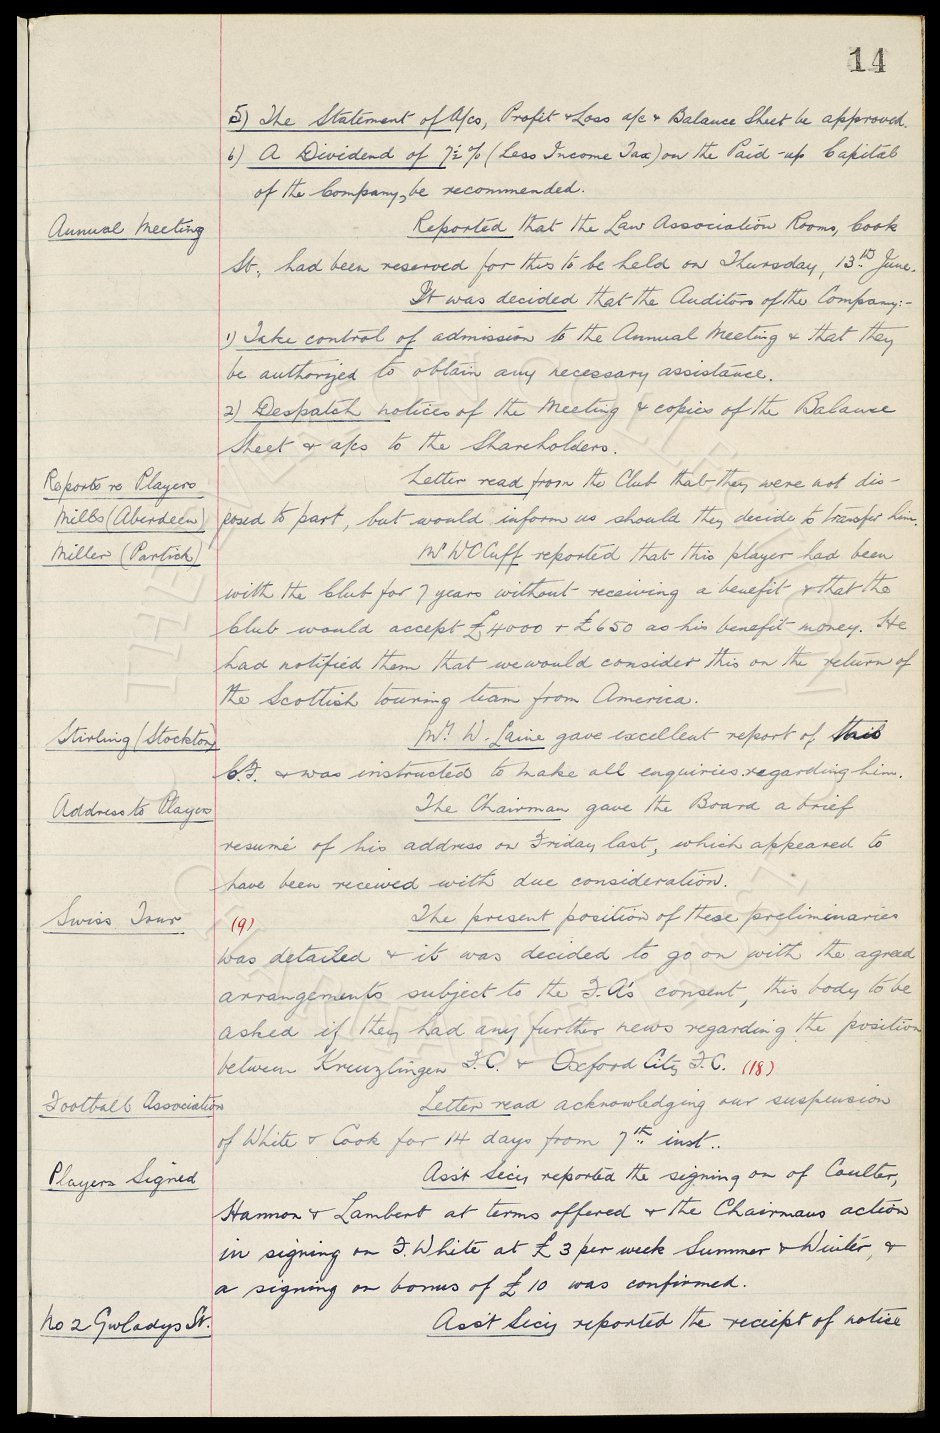 14
5) The Statement of A/cs, Profit & Loss a/c & Balance Sheet be approved.
6) A Dividend of 7½% (Less Income Tax) on the Paid-up Capital
of the Company, be recommended.
Annual Meeting Reported that the Law Association Rooms, Cook
St., had been reserved for this to be held on Thursday, 13th June.
It was decided that the Auditors of the Company:-
1) Take control of admission to the Annual Meeting & that they
be authorized to obtain any necessary assistance.
2) Despatch notices of the Meeting & copies of the Balance
Sheet & a/cs to the Shareholders.
Reports re Players Letter read from the Club that they were not dis-
Mills (Aberdeen) posed to part, but would inform us should they decide to transfer him.
Miller (Partick) Mr W C Cuff reported that this player had been
with the Club for 7 years without receiving a benefit & that the
Club would accept £4000 & £650 as his benefit money. He
had notified them that we would consider this on the return of
the Scottish touring team from America.
Stirling (Stockton) Mr. W. Laine gave excellent report of this
C.F. & was instructed to make all enquiries regarding him.
Address to Players The Chairman gave the Board a brief
resumé of his address on Friday last, which appeared to
have been received with due consideration.
Swiss Tour (9) The present position of these preliminaries
was detailed & it was decided to go on with the agreed
arrangements subject to the F.A's consent, this body to be
asked if they had any further news regarding the position
between Kreuzlingen F.C. & Oxford City F.C. (18)
Football Association Letter read acknowledging our suspension
of White & Cook for 14 days from 7th inst..
Players Signed Ass't Secy reported the signing on of Coulter,
Hannon & Lambert at terms offered & the Chairmans action
in signing on F. White at £3 per week Summer & Winter, &
a signing on bonus of £10 was confirmed.
No 2 Gwladys St. Ass't Secy reported the receipt of notice